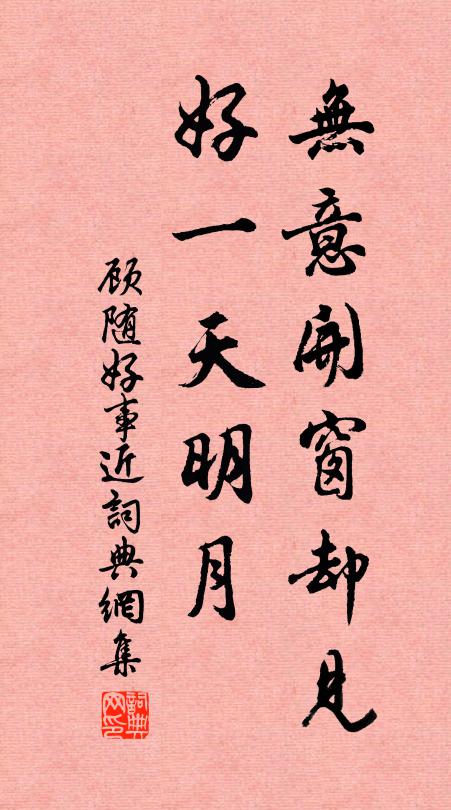 無意開窗却見
好一天明月
顾随好事近詞典網集
詞典网印